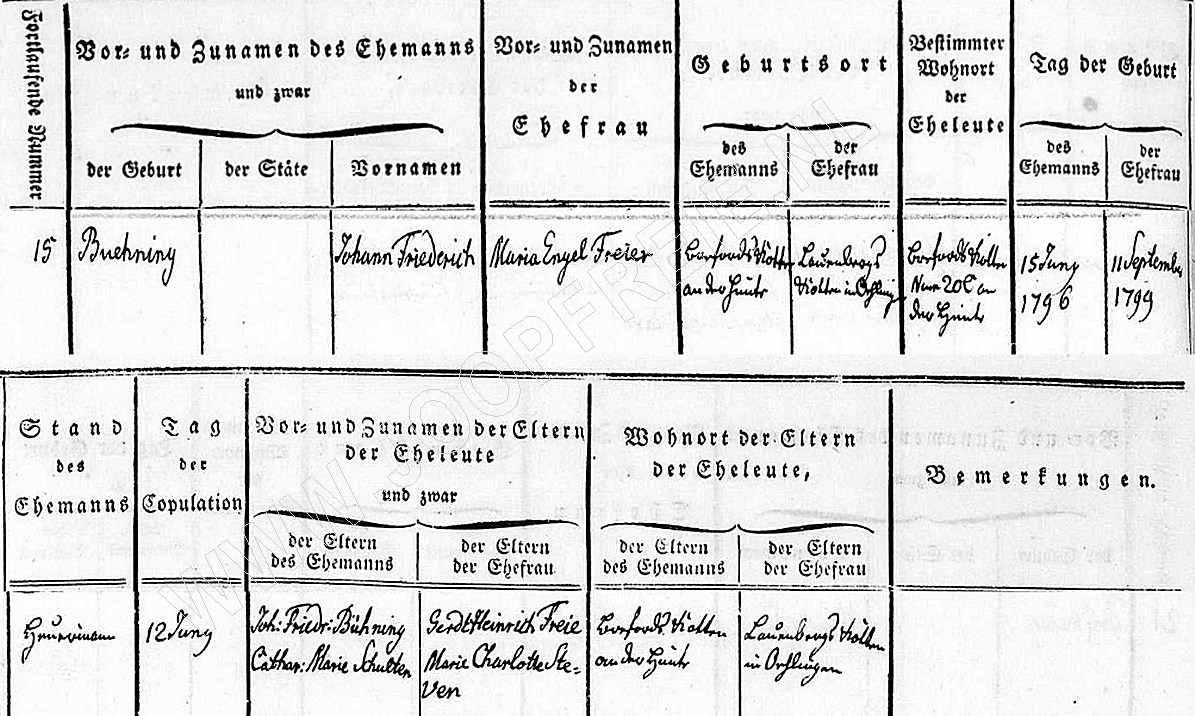 Fortlaufende Nummer
Vor- und Zunamen des Ehemanns
und zwar
der Geburt
der Stäte
Vornamen
Vor- und Zunamen
der
Ehefrau
Geburtsort
des
Ehemanns
der
Ehefrau
Bestimmter
Wohnort
der
Eheleute
Tag der Geburt
des
Ehemanns
der
Ehefrau
15
Buehning
Johann Friederich
Maria Engel Freier
an der Hunte
Lauenbergs
Kotten in
Num 20C an
der Hunte
15 Juny
1796
11 September
1799
Stand
des
Ehemanns
Tag
der
Copulation
Vor- und Zunamen der Eltern
der Eheleute
und zwar
der Eltern
des Ehemanns
der Eltern
der Ehefrau
Wohnort der Eltern
der Eheleute,
der Eltern
des Ehemanns
der Eltern
der Ehefrau
Bemerkungen.
Heuermann
12 Juny
Joh: Friedr: Bühning
Cathar: Marie Schulten
Gerdt Heinrich Freie
Marie Charlotte Ste-
ven
Kotten
an der Hunte
Lauenbergs Kotten
in Oehlingen
WWW.JOOPFREIE.NL